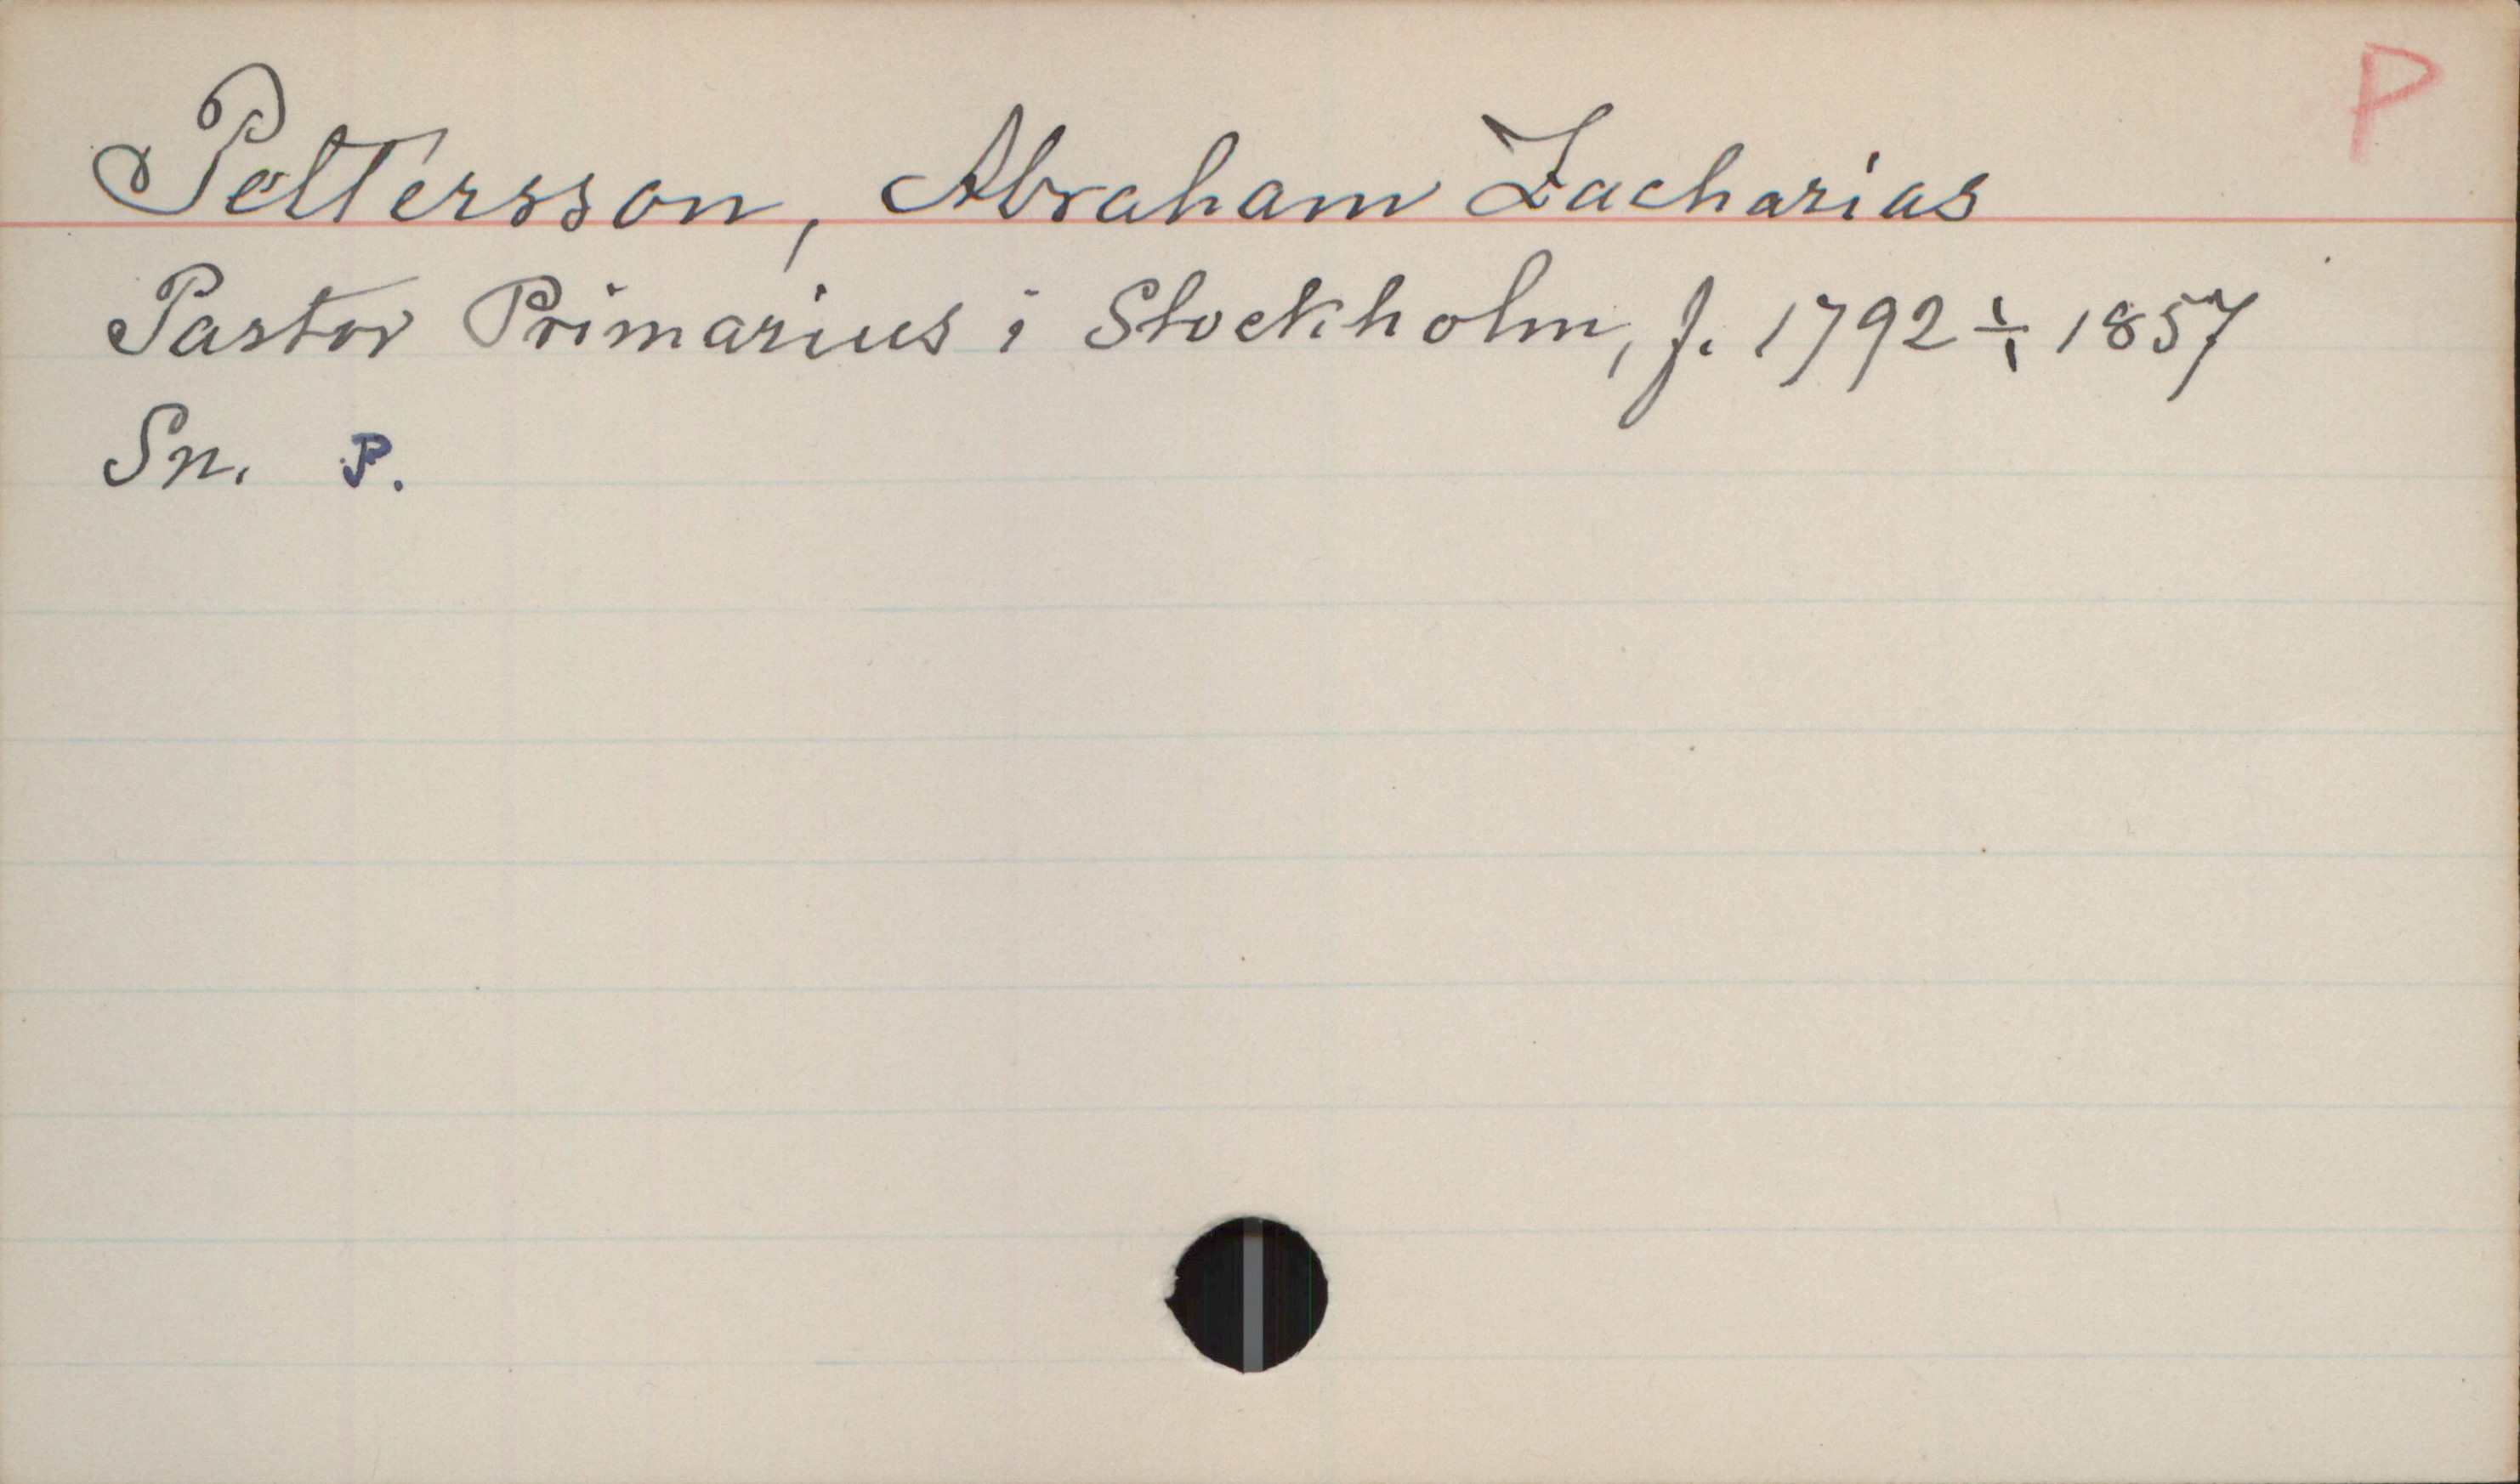 P
Pettersson, Abraham Zacharias
Pastor Primarius i Stockholm, f. 1792 ÷ 1857
Sn. P.